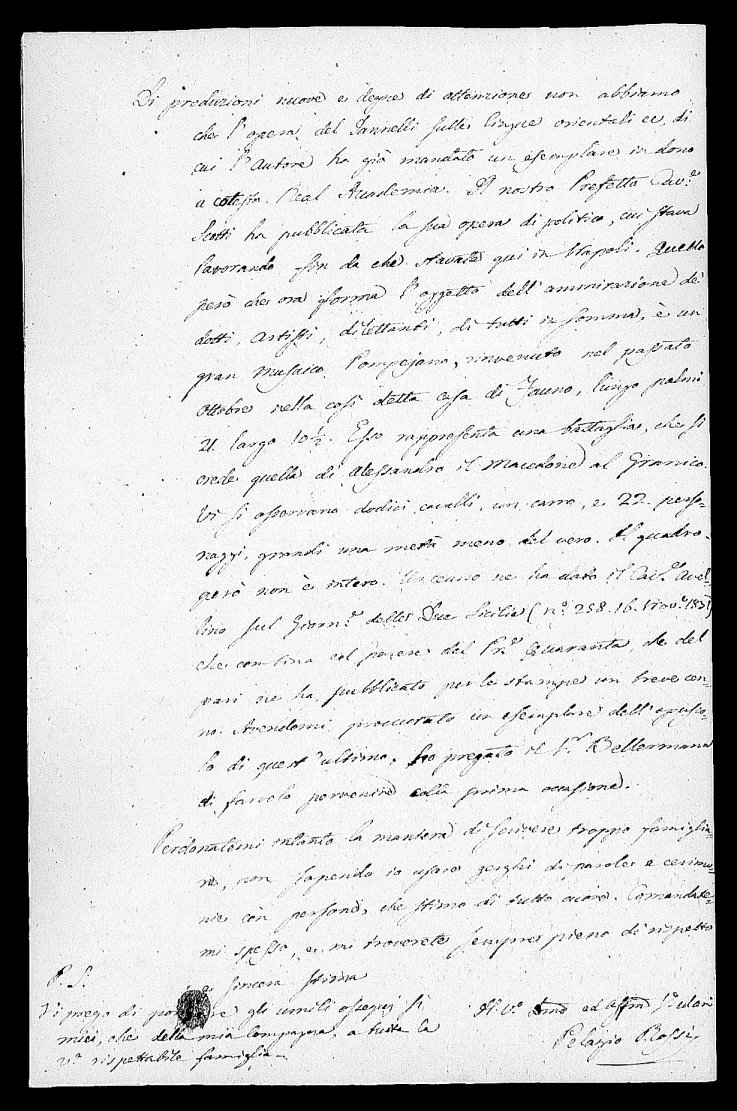 Di produzioni nuove e degne di attenzione non abbiamo
che l'opera del Jannelli sulle lingue orientali ec, di
cui l'autore ha già mandato un esemplare in dono
a cotesta Real Accademia. Il nostro Prefetto Cav.e
Scotti ha pubblicata la sua opera di politica, cui stava
lavorando fin da che stavate qui in Napoli. Quello
però che ora forma l'oggetto dell'ammirazione de'
dotti, artisti, dilettanti, di tutti in somma, è un
gran musaico Pompejano, rinvenuto nel passato
ottobre nella così detta casa di Fauno, lungo palmi
21 largo 10½. Esso rappresenta una battaglia, che si
crede quella di Alessandro il Macedone al Granico.
Vi si osservano dodici cavalli, un carro, e 22. perso-
naggi, grandi una metà meno del vero. Il quadro
però non è intero. Un cenno ne ha dato il Cav.e Avel-
lino sul Giorn.e delle Due Sicilie (n.o 258. 16. Nov.e 1831)
che combina col parere del Pr.e Quaranta, che del
pari ne ha pubblicato per le stampe un breve cen-
no. Avendomi procurato un esemplare dell'opusco-
lo di quest'ultimo, ho pregato il Sr. Bellermann
di farvelo pervenire colla prima occasione.
Perdonatemi intanto la maniera di scrivere troppo famiglia-
re, non sapendo io usare gerghi di parole e cerimo-
nie con persone, che stimo di tutto cuore. Comandate-
mi spesso, e mi troverete sempre pieno di rispetto
e sincera stima
P. S.
Vi prego di por re gli umili ossequj sì
miei, che della mia Compagna, a tutta la
v.a rispettabile famiglia.
Il V.o ed
Pelagio Rossi